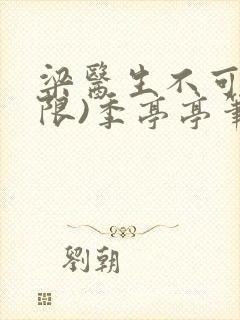 梁醫生不可
限)季亭亭筆
劉朝